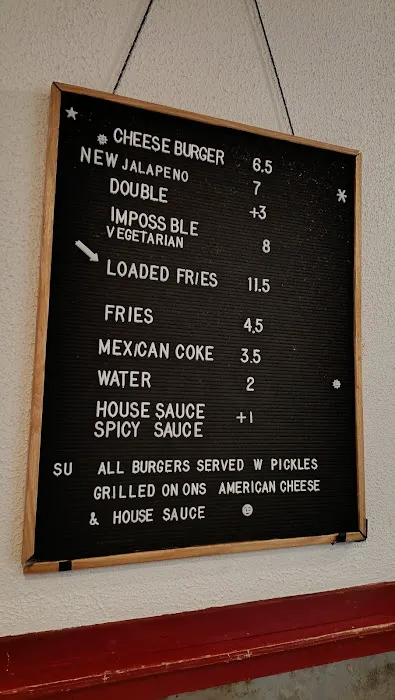 CHEESE BURGER 6.5
NEW JALAPENO 7
DOUBLE +3
IMPOSS BLE
VEGETARIAN 8
LOADED FRIES 11.5
FRIES 4.5
MEXICAN COKE 3.5
WATER 2
HOUSE SAUCE +1
SPICY SAUCE
$U ALL BURGERS SERVED W PICKLES
GRILLED ON ONS AMERICAN CHEESE
& HOUSE SAUCE